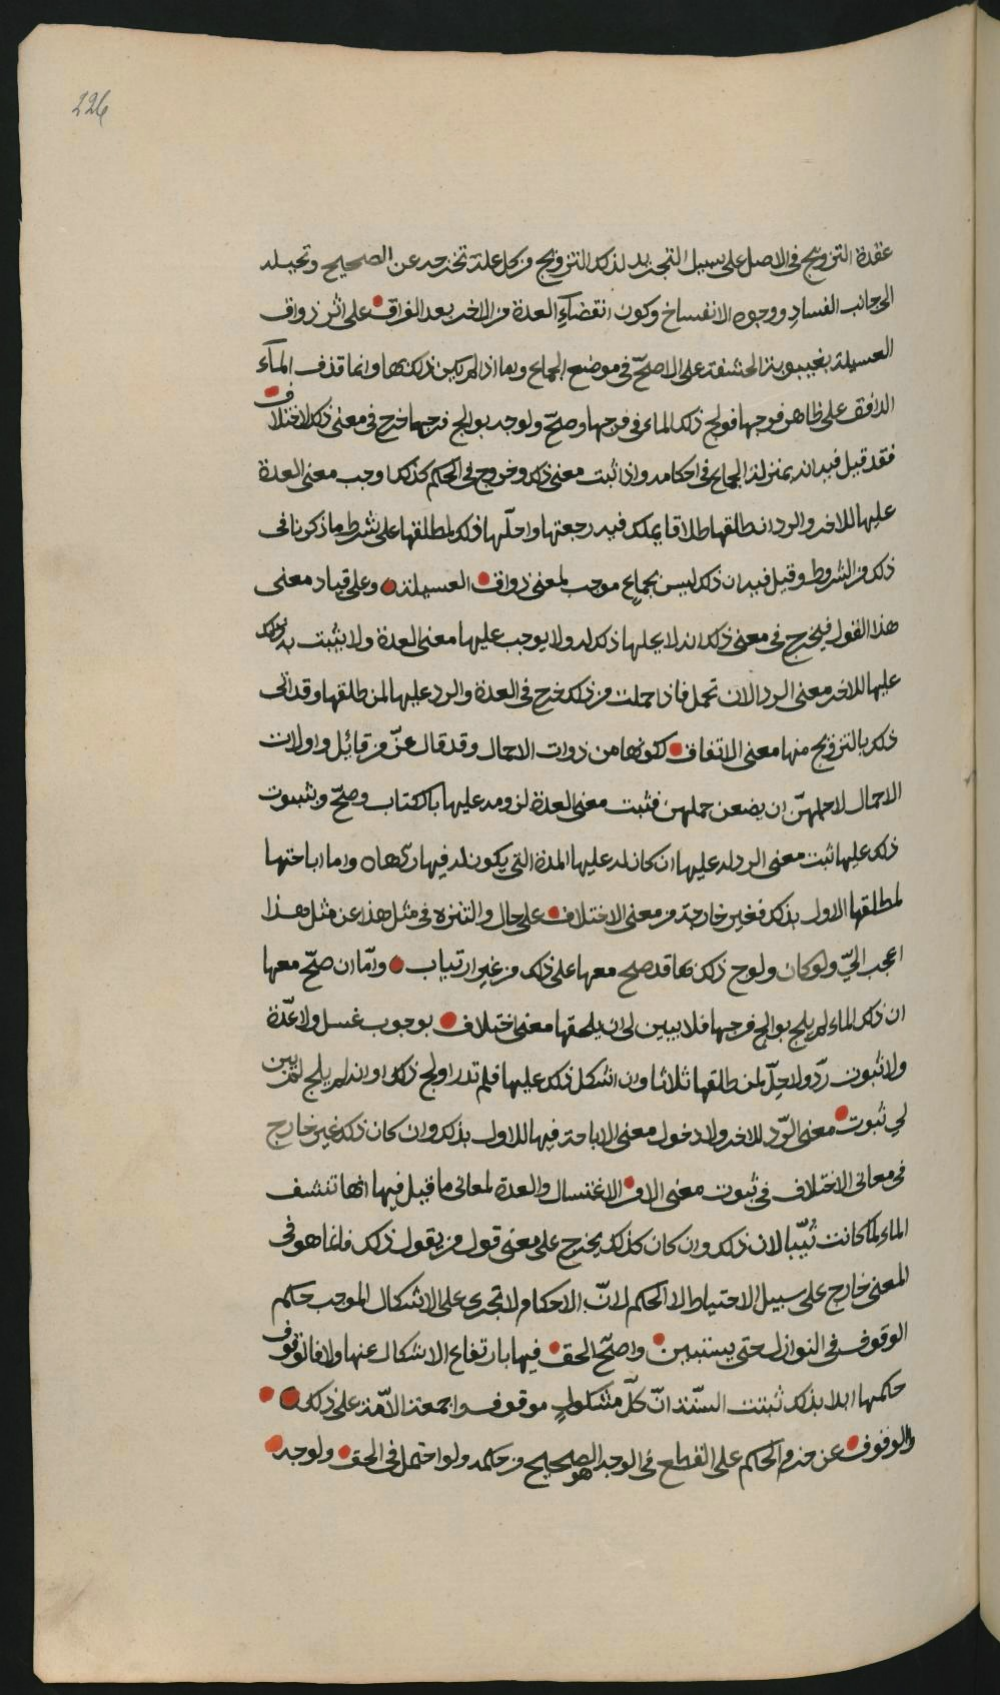 226
عقدة التزويج فى الاصل على سبيل التجديد لذلك التزويج من كل علة تخرجه عن الصحيح وتحيله
الى جانب الفساد ووجوه الانفساخ وكون انقضاء العدة من الاخر بعد الفراق على اثر ذواق
العسيلة بغيبوبة الحشفة على الاصحّ فى موضع الجماع وما اذا لم يكن ذلك بها وانما قذف المآء
الدافق على ظاهر فرجها فولج ذلك الماء فى فرجها وصحّ ولوجه بوالج فرجها خرج فى معنى ذلك الاختلاف
فقد قيل فيه انه بمنزلة الجماع فى احكامه واذا ثبت معنى ذلك وخروج فى الحكم كذلك اوجب معنى العدة
عليها للاخر والرد ان طلقها طلاقا يملك فيه رجعتها واحلّها ذلك لمطلقها على شرط ما ذكرنا فى
ذلك من الشروط وقيل فيه ان ذلك ليس بجماع موجب لمعنى ذواق العسيلة وعلى قياد معنى
هذا القول فيخرج فى معنى ذلك انه لا يحلها ذلك له ولا يوجب عليها معنى العدة ولا يثبت به ذلك
عليها للاخر معنى الرد الا ان تحمل فاذا حملت من ذلك خرج فى العدة والرد عليها لمن طلقها وقد اتى
ذلك بالتزويج منها معنى الاتفاق لكونها من ذوات الاحمال وقد قال عزّ من قائل واولات
الاحمال اجلهنّ ان يضعن حملهن فثبت معنى العدة لزومه عليها بالكتاب وصحّ وبثبوت
ذلك عليها ثبت معنى الرد له عليها ان كان له عليها المدة التى يكون له فيها ردها واما اباحتها
لمطلقها الاول بذلك فغير خارجة من معنى الاختلاف على حال والتنزه فى مثل هذا عن مثل هذا
اعجب الىّ ولو كان ولوج ذلك بها قد صح معها على ذلك من غير ارتياب وامّا ان صحّ معها
ان ذلك الماء لم يلج بوالج فرجها فلا يبين لى انه يلحقها معنى اختلاف بوجوب غسل ولا عدّة
ولا ثبوت ردّ ولا حلّ لمن طلقها ثلاثا وان اشكل ذلك عليها فلم تدر اولج ذلك او انه لم يلج لم يبن
لى ثبوت معنى الرّد للاخر ولا دخول معنى الاباحة فيها للاول بذلك وان كان ذلك غير خارج
فى معانى الاختلاف فى ثبوت معنى الامر الاغتسال والعدة لمعانى ما قيل فيها انها تنشف
الماء لما كانت ثيّبا لان ذلك وان كان كذلك يخرج على معنى قول من يقول ذلك فانما هو فى
المعنى خارج على سبيل الاحتياط لا الحكم لانّ الاحكام لا تجرى على الاشكال الموجب حكم
الوقوف فى النوازل حتى يستبين واصحّ الحق فيها بارتفاع الاشكال عنها والا فالوقوف
حكمها ابدا بذلك ثبتت السّنّة انّ كلّ مشكول موقوف واجمعت الامّة على ذلك
والوقوف عن جزم الحكم على القطع فى الوجه هو الصحيح من حكمه ولو احتمل فى الحق ولوجه